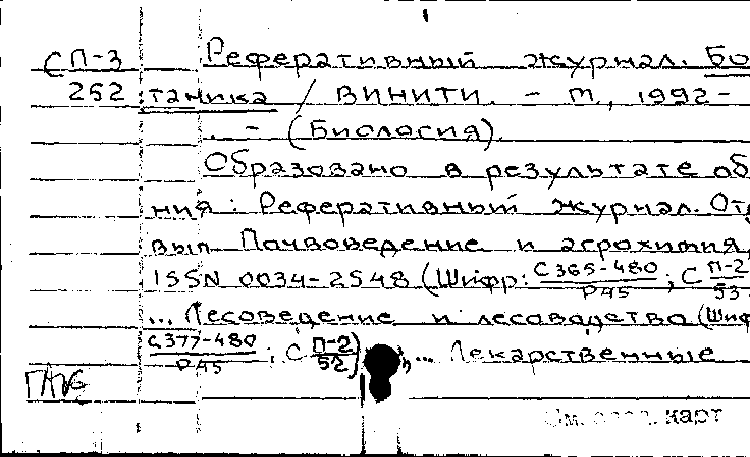 СП-3 Реферативный журнал. Бо
252 таника / ВИНИТИ. - М., 1992-
. - (Биология).
Образовано в результате об
ния: Реферативный журнал. Отд
вып Почвоведение и агрохимия,
ISSN 0034-2548 (Шифр: С365-480/Р45 ; С П-2/53
... Лесоведение и лесоводство (Шиф
С377-480/Р45 ; С П-2/52), ... Лекарственные
карт